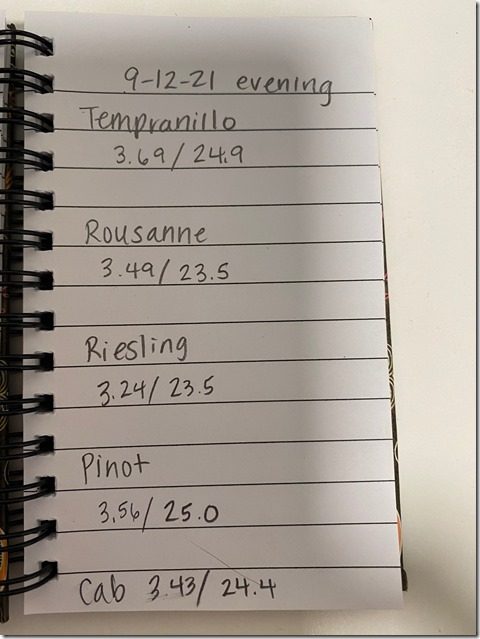 9-12-21 evening
Tempranillo
3.69/24.9
Rousanne
3.49/23.5
Riesling
3.24/23.5
Pinot
3.56/25.0
Cab 3.43/24.4